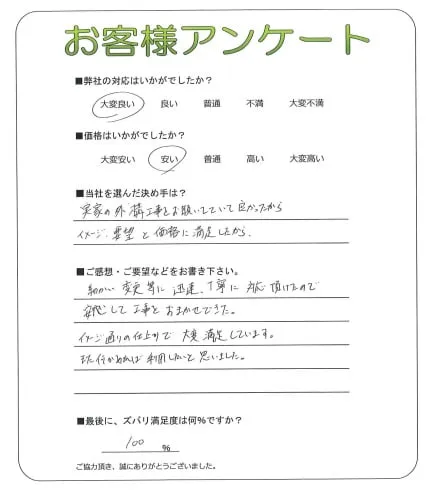 お客様アンケート
■弊社の対応はいかがでしたか？
大変良い 良い 普通 不満 大変不満
■価格はいかがでしたか？
大変安い 安い 普通 高い 大変高い
■当社を選んだ決め手は？
実家の外構工事をお願いしていて良かったから
イメージ、要望と価格に満足したから、
■ご感想・ご要望などをお書き下さい。
細かい変更等に迅速、丁寧に対応頂けたので
安心して工事をおまかせできた。
イメージ通りの仕上がりで大変満足しています。
また何かあれば利用したいと思いました。
■最後に、ズバリ満足度は何％ですか？
100 ％
ご協力頂き、誠にありがとうございました。